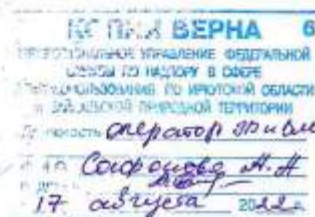 КОПИЯ ВЕРНА 6
УПРАВЛЕНИЕ ФЕДЕРАЛЬНОЙ
СЛУЖБЫ ПО НАДЗОРУ В СФЕРЕ
ПРИРОДОПОЛЬЗОВАНИЯ ПО ИРКУТСКОЙ ОБЛАСТИ
И БАЙКАЛЬСКОЙ ПРИРОДНОЙ ТЕРРИТОРИИ
Должность оператор ЭВ и ВМ
Ф.И.О. Сафонова А.Н
17 августа 2022г.